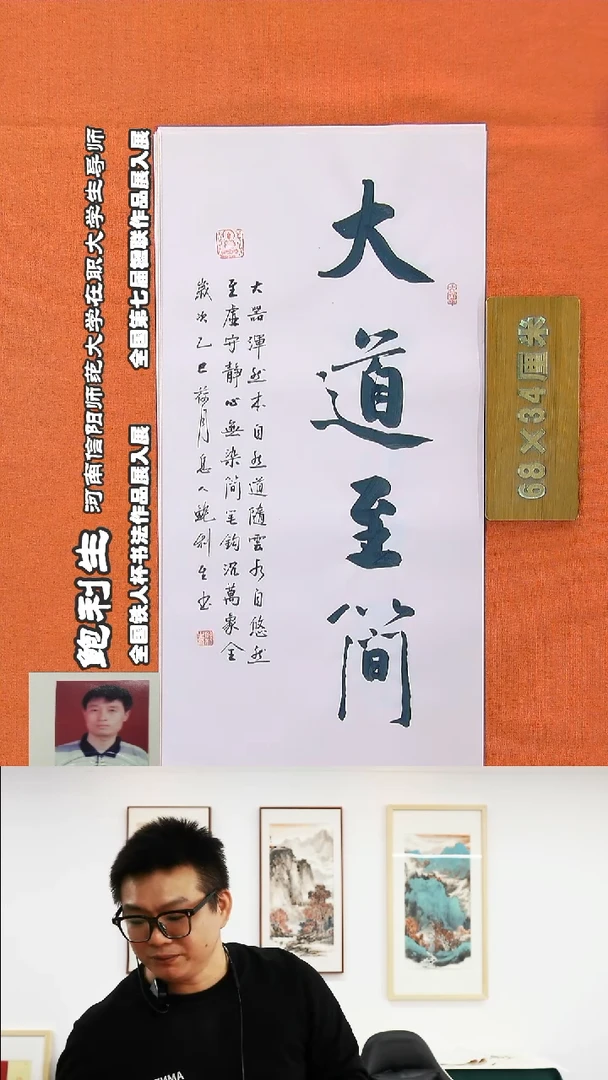 大道至簡
大器渾然本自然道隨雲水自悠然
至虛守靜心無染簡筆鉤沉萬象全
歲次乙巳月人鮑利生書
鲍利生 河南信阳师范大学在职大学生导师
全国铁人杯书法作品展入展 全国第七届楹联作品展入展
68×34厘米